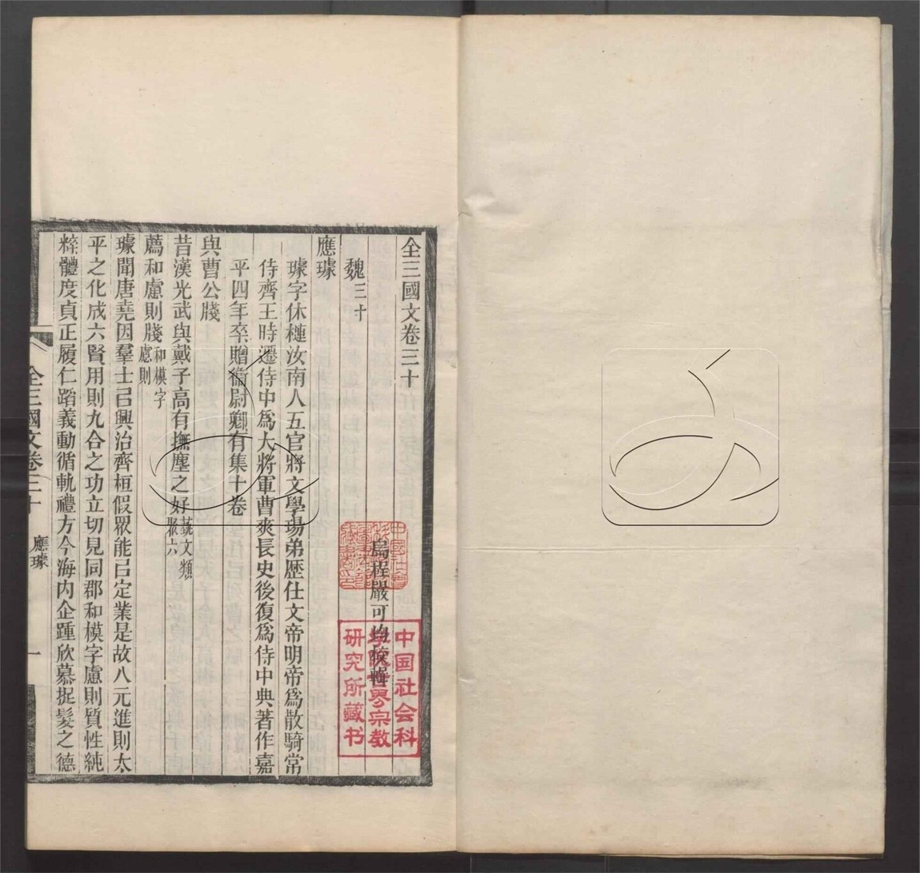 全三國文卷三十
烏程嚴可均校輯
魏三十
應璩
璩字休璉汝南人五官將文學瑒弟歷仕文帝明帝爲散騎常
侍齊王時遷侍中爲大將軍曹爽長史後復爲侍中典著作嘉
平四年卒贈衞尉卿有集十卷
與曹公牋
昔漢光武與戴子高有撫塵之好藝文類
聚六
薦和慮則牋和模字
慮則
璩聞唐堯因羣士㠯興治齊桓假眾能㠯定業是故八元進則太
平之化成六賢用則九合之功立切見同郡和模字慮則質性純
粹體度貞正履仁蹈義動循軌禮方今海内企踵欣慕捉髮之德
全三國文卷三十
應璩
一
中国社会科
学院世界宗教
研究所藏书